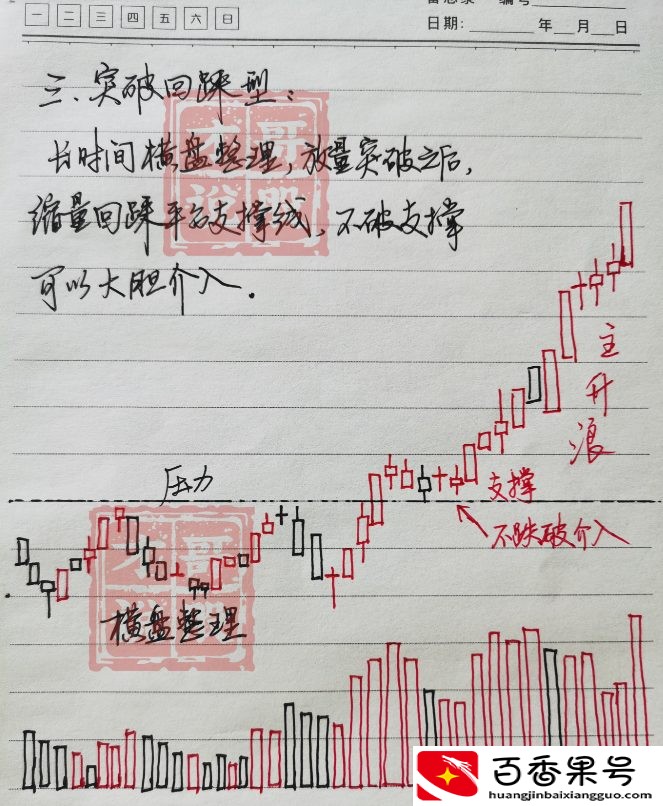 一 二 三 四 五 六 日
备忘录 编号
日期: 年 月 日
三、突破回踩型:
长时间横盘整理,放量突破之后,
缩量回踩平台支撑线,不破支撑
可以大胆介入.
主升浪
压力
支撑
不跌破介入
横盘整理
百香果号
huangjinbaixiangguo.com